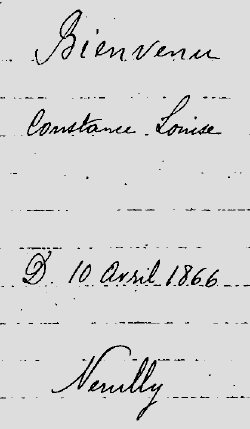 Bienvenu
Constance Louise
D 10 Avril 1866
Neuilly